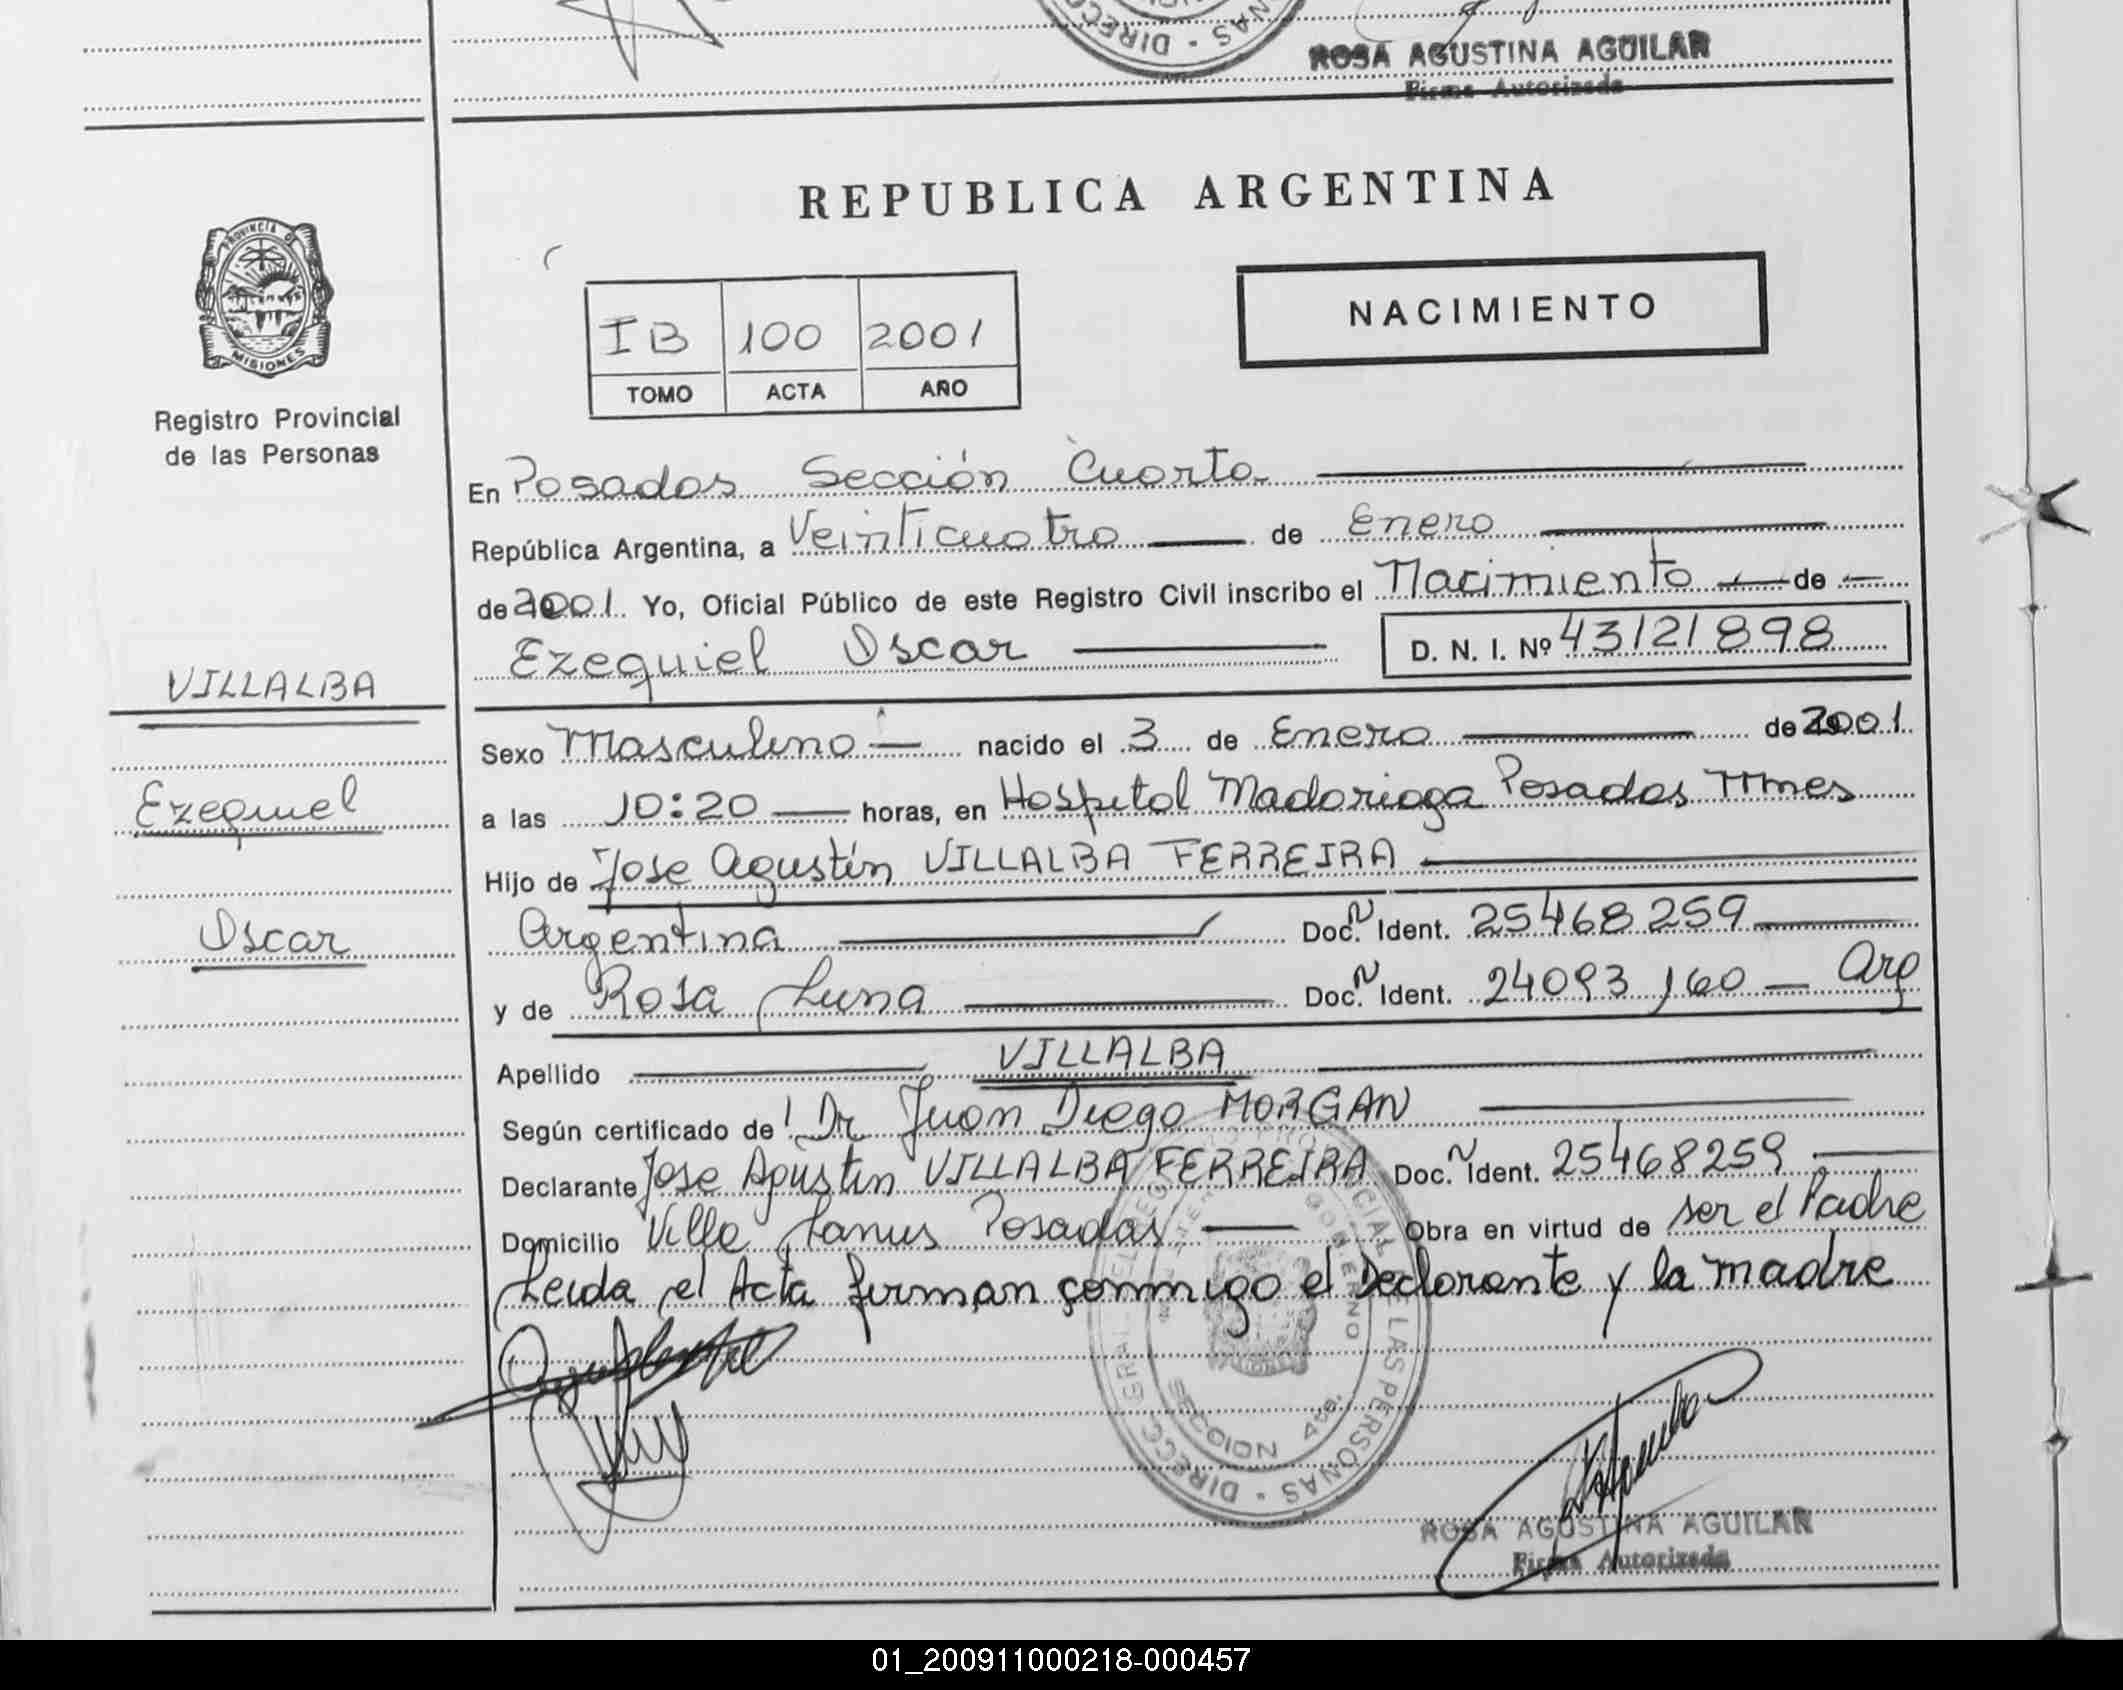 DIRECC
ROSA AGUSTINA AGUILAR
Firma Autorizada
REPUBLICA ARGENTINA
PROVINCIA DE
MISIONES
IB 100 2001
TOMO ACTA AÑO
NACIMIENTO
Registro Provincial
de las Personas
En Posadas Sección Cuarta
República Argentina, a Veinticuatro de Enero
de 2001. Yo, Oficial Público de este Registro Civil inscribo el Nacimiento de
Ezequiel Oscar D. N. I. Nº 43121898
VILLALBA
Sexo Masculino nacido el 3 de Enero de 2001
Ezequiel
a las 10:20 horas, en Hospital Madariaga Posadas Mnes
Hijo de Jose Agustín VILLALBA FERREIRA
Oscar
Argentina Doc. Ident. 25468259
y de Rosa Luna Doc. Ident. 24093160 Arg
Apellido VILLALBA
Según certificado de Dr Juan Diego MORGAN
Declarante Jose Agustin VILLALBA FERREIRA Doc. Ident. 25468259
Domicilio Villa Lanus Posadas Obra en virtud de ser el Padre
Leida el Acta firman conmigo el Declarante y la madre
DIRECC GRAL DEL REGISTRO PROVINCIAL DE LAS PERSONAS
GOBIERNO
MISIONES
SECCION 4ta.
ROSA AGUSTINA AGUILAR
Firma Autorizada
01_200911000218-000457